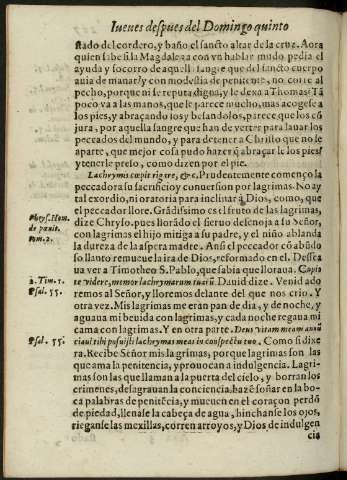 Iueues despues del Domingo quinto
stado del cordero, y baño el sancto altar de la cruz. Aora
quien sabe si la Magdalena con vn hablar mudo pedia el
ayuda y socorro de aquella sangre que del sancto cuerpo
auia de manar? y con modestia de penitente, no corre al
pecho, porque ni se reputa digna, y le dexa a Thomas: Tã
poco va a las manos, que le parece mucho, mas acogese a
los pies, y abraçando los y besandolos, parece que los cõ
jura, por aquella sangre que han de verter para lauar los
peccados del mundo, y para detener a Christo que no se
aparte, que mejor cosa pudo hazer q̃ abraçar le los pies?
y tenerle preso, como dizen por el pie.
Lachrymis cœpit rigare, &c. Prudentemente començo la
peccadora su sacrificio y conuersion por lagrimas. No ay
tal exordio, ni oratoria para inclinar à Dios, como, que
el peccador llore. Grãdissimo es el fruto de las lagrimas,
Chrys. Hom.
de panit.
tom. 2.
dize Chryso. pues llorãdo el sieruo desenoja a su Señor,
con lagrimas el hijo mitiga a su padre, y el niño ablanda
la dureza de la aspera madre. Ansi el peccador cõ abũdo
so llanto remueue la ira de Dios, reformado en el. Dessea
ua ver a Timotheo S. Pablo, que sabia que lloraua. Cupio
2. Tim. 1.
Psal. 55.
te videre, memor lachrymarum tuarũ. Dauid dize. Venid ado
remos al Señor, y lloremos delante del que nos crio. Y
otra vez. Mis lagrimas me erãn pan de dia, y de noche, y
aguaua mi beuida con lagrimas, y cada noche regaua mi
cama con lagrimas. Y en otra parte. Deus vitam meam anũ
Psal. 55.
ciaui tibi posuisti lachrymas meas in conspectu tuo. Como si dixe
ra. Recibe Señor mis lagrimas, porque lagrimas son las
que ama la penitencia, y prouocan a indulgencia. Lagri-
mas son las que llaman a la puerta del cielo, y borran los
crimenes, desagrauan la conciencia, hazẽ soñar en la bo-
ca palabras de penitẽcia, y mueuen en el coraçon perdõ
de piedad, llenase la cabeça de agua, hinchanse los ojos,
rieganse las mexillas, corren arroyos, y Dios de indulgen
cia